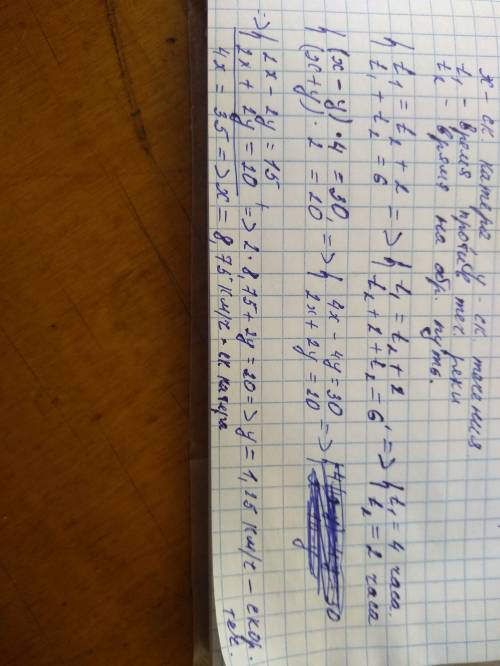 x - ск. катера y - ск. течения
t₁ - время против теч. реки
t₂ - время на обр. путь.
{ t₁ = t₂ + 2 => { t₁ = t₂ + 2 , => { t₁ = 4 часа.
{ t₁ + t₂ = 6 { t₂ + 2 + t₂ = 6 { t₂ = 2 часа
{ (x - y) · 4 = 30, => { 4x - 4y = 30 =>
{ (x + y) · 2 = 20 { 2x + 2y = 20
=> { 2x - 2y = 15 +
{ 2x + 2y = 20 => 2 · 8,75 + 2y = 20 => y = 1,25 км/ч - скор. теч.
4x = 35 => x = 8,75 км/ч - ск катера